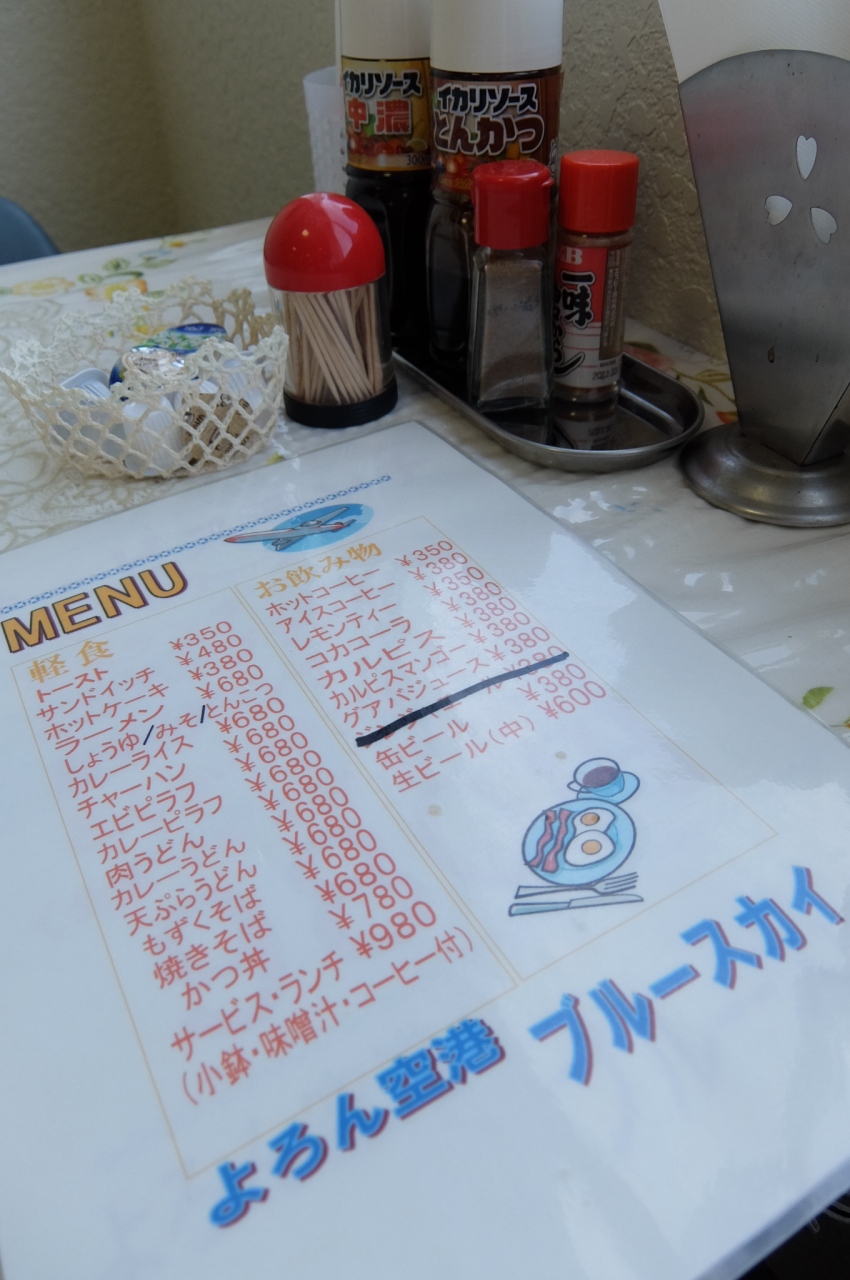 イカリソース
中濃
300
イカリソース
とんかつ
S&B
一味
MENU
軽食
トースト ¥350
サンドイッチ ¥480
ホットケーキ ¥380
ラーメン ¥680
しょうゆ/みそ/とんこつ
カレーライス ¥680
チャーハン ¥680
エビピラフ ¥680
カレーピラフ ¥680
肉うどん ¥680
カレーうどん ¥680
天ぷらうどん ¥680
もずくそば ¥680
焼きそば ¥680
かつ丼 ¥780
サービス・ランチ ¥980
(小鉢・味噌汁・コーヒー付)
お飲み物
ホットコーヒー ¥350
アイスコーヒー ¥380
レモンティー ¥350
コカコーラ ¥380
カルピス ¥380
カルピスマンゴー ¥380
グアバジュース ¥380
缶ビール ¥380
生ビール(中) ¥600
よろん空港 ブルースカイ